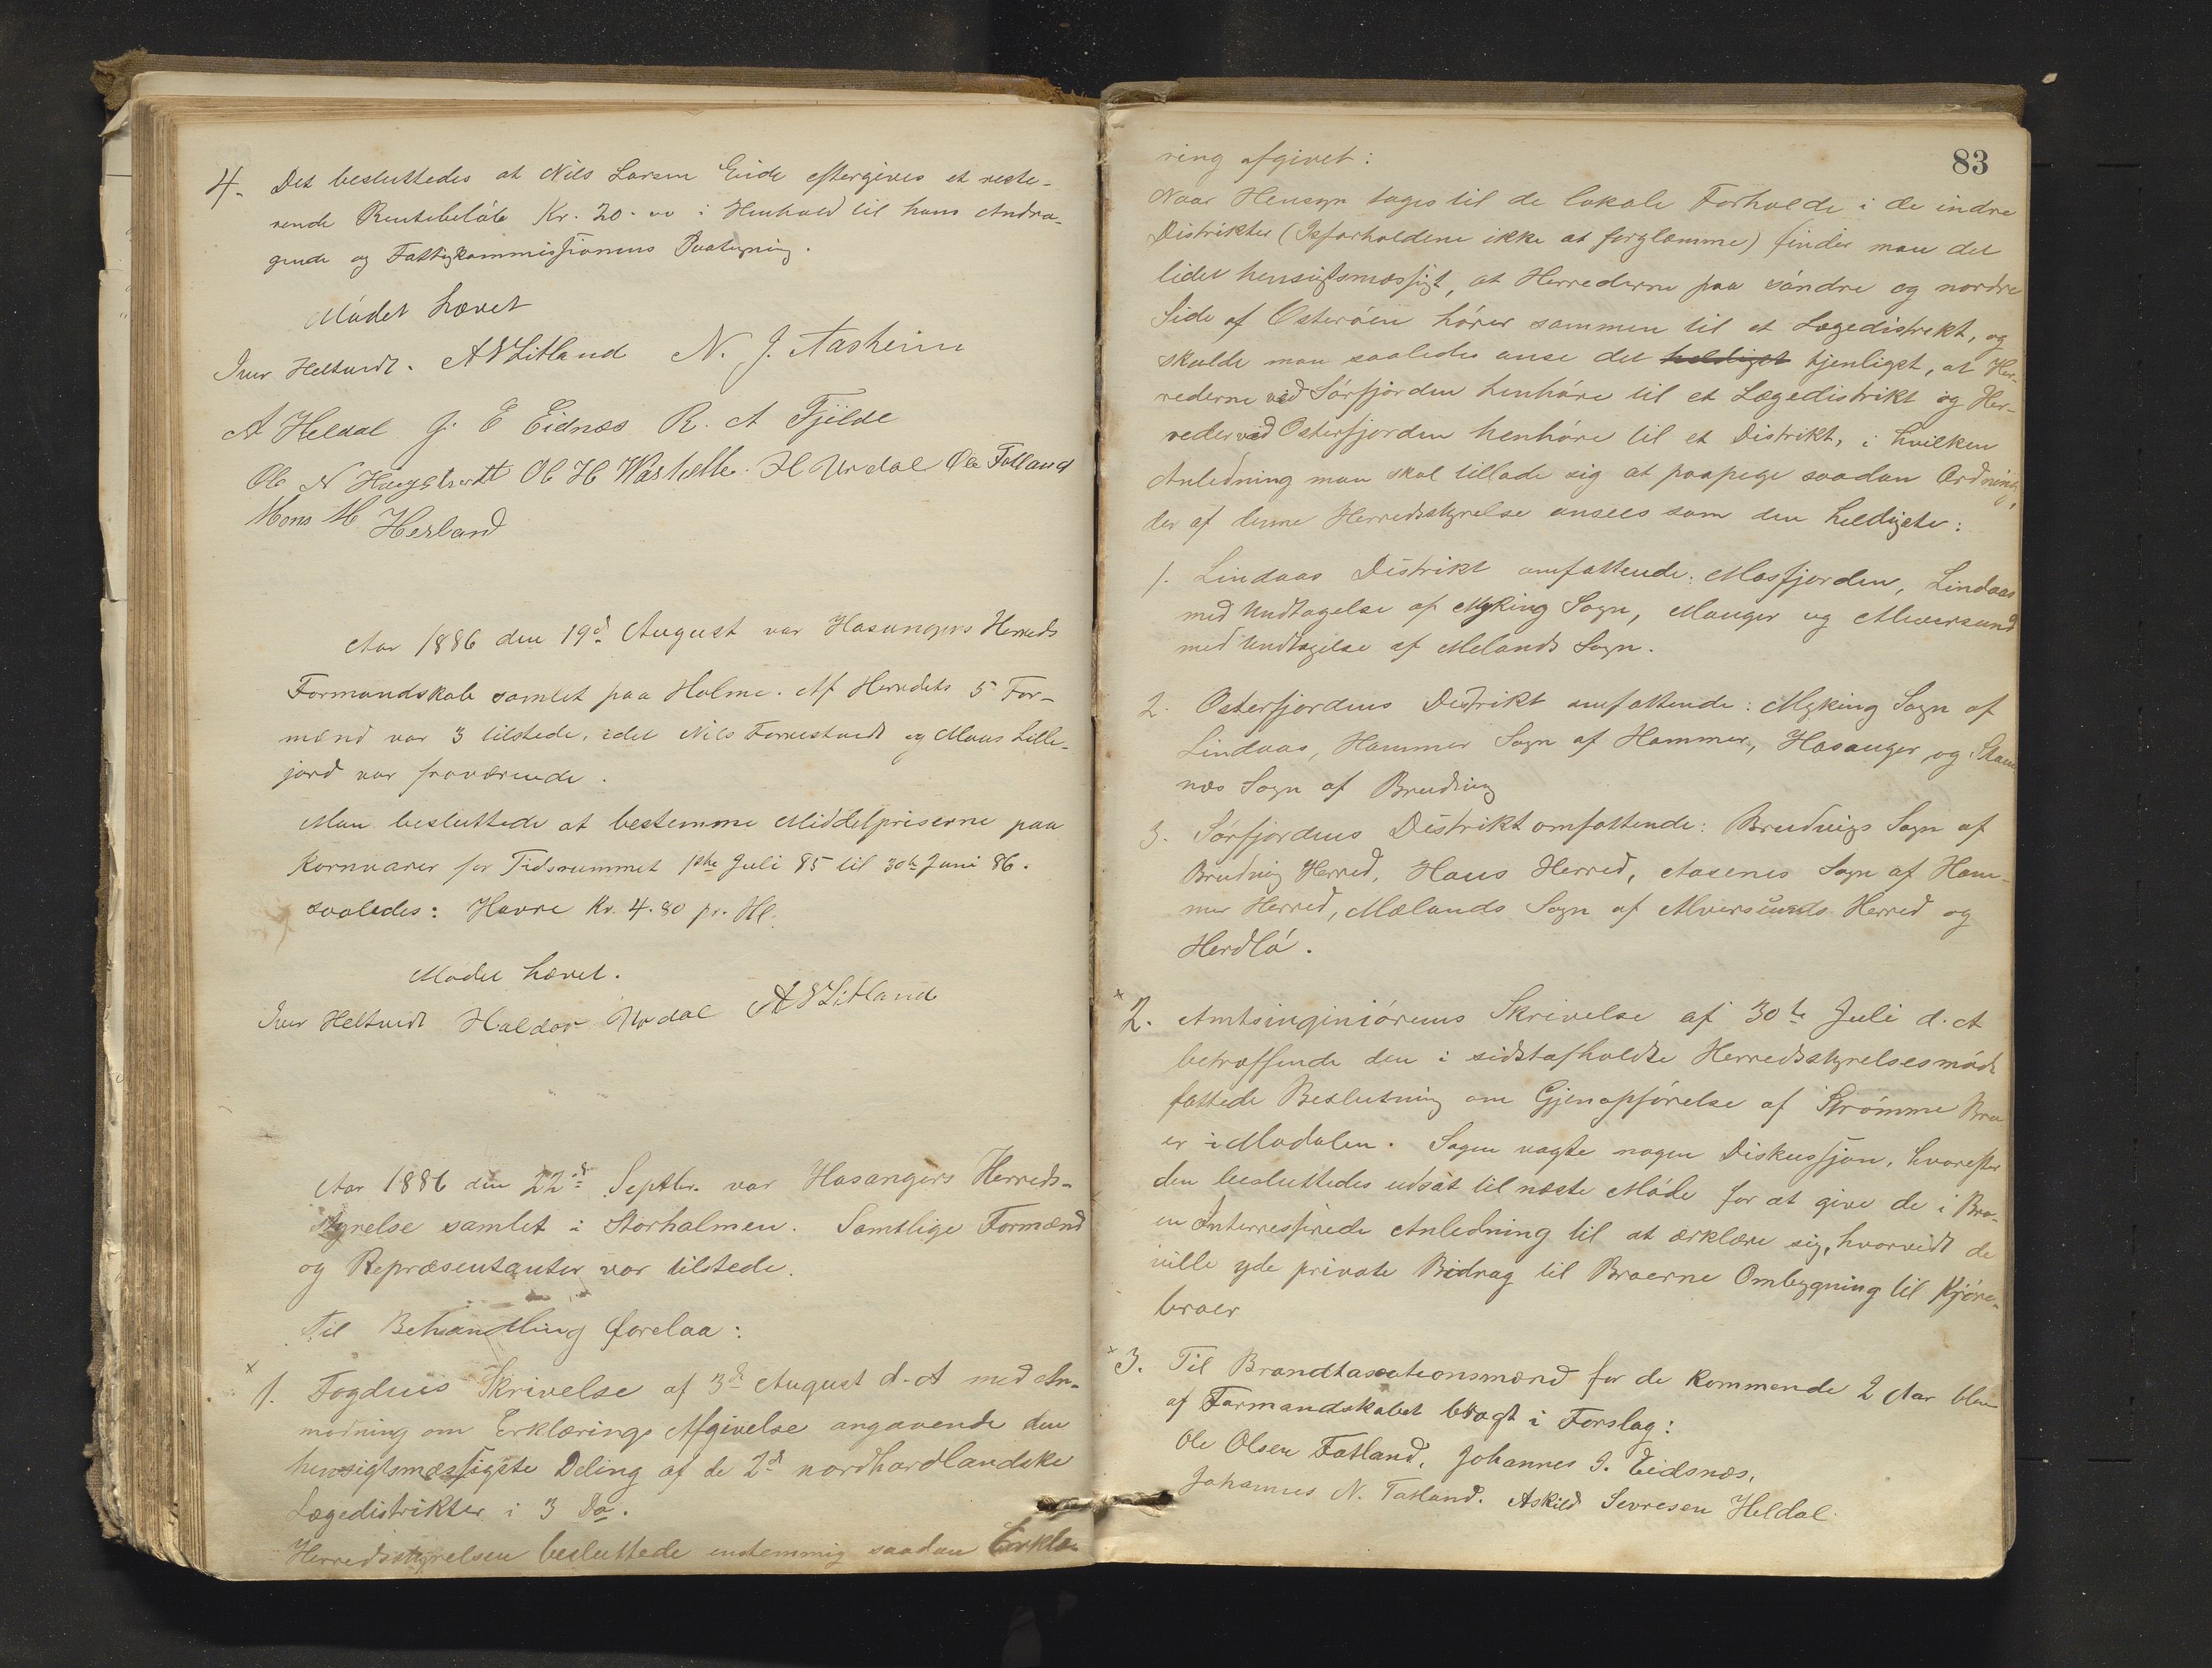 4. Det besluttedes at Nils Larsen Eide eftergives et reste-
rende Rentebeløb Kr. 20.00 i Henhold til hans Andra-
gende og Fattigkommissionens Paategning.
Mødet hævet
Iver Heltvedt. A N Litland N. J. Aasheim
A Heldal J. E Eidnæs R. A Fjelde
Ole N Haugstvedt Ol H Vashelle. H Urdal Ole Fatland
Mons M Herland
Aar 1886 den 19d August var Hosangers Herreds
Formandskab samlet paa Holme. Af Herredets 5 For-
mænd var 3 tilstede, idet Nils Fornestvedt og Mons Lille-
jord var fraværende.
Man besluttede at bestemme Middelpriserne paa
Kornvarer for Tidsrummet 1ste Juli 85 til 30te Juni 86.
saaledes: Havre Kr. 4.80 pr. Hl.
Mødet hævet.
Iver Heltvedt Haldor Urdal A N Litland
Aar 1886 den 22de Septbr. var Hosangers Herreds-
styrelse samlet i Storholmen. Samtlige Formænd
og Repræsentanter var tilstede.
Til Behandling forelaa:
x 1. Fogdens Skrivelse af 3de August d. A med An-
modning om Erklærings Afgivelse angaaende den
hensigtsmæssigste Deling af de 2de nordhordlandske
Lægedistrikter i 3 Do.
Herredsstyrelsen besluttede enstemmig saadan Erklæ-
83
ring afgivet:
Naar Hensyn tages til de lokale Forholde i de indre
Distrikter (Isforholdene ikke at forglemme) finder man det
lidet hensigtsmæssigt, at Herrederne paa søndre og nordre
Side af Osterøen hører sammen til et Lægedistrikt, og
skulde man saaledes anse det heldigst tjenligst, at Her-
rederne ved Sørfjorden henhøre til et Lægedistrikt og Her-
reder ved Osterfjorden henhøre til et Distrikt, i hvilken
Anledning man skal tillade sig at paapege saadan Ordning,
der af denne Herredsstyrelse ansees som den heldigste:
1. Lindaas Distrikt omfattende: Mosfjorden, Lindaas
med Undtagelse af Myking Sogn, Manger og Alversund
med Undtagelse af Melands Sogn.
2. Osterfjordens Distrikt omfattende: Myking Sogn af
Lindaas, Hammer Sogn af Hammer, Hosanger, og Stam
næs Sogn af Brudvig
3. Sørfjordens Distrikt omfattende: Brudvigs Sogn af
Brudvig Herred, Haus Herred, Aasenes Sogn af Ham-
mer Herred, Mælands Sogn af Alversunds Herred og
Herdlø.
x 2. Amtsinginiørens Skrivelse af 30te Juli d. A
betræffende den i sidstafholdte Herredsstyrelsesmøde
fattede Beslutning om Gjenopførelse af Strømme Bro
er i Modalen. Sagen vagte nogen Diskussjon, hvorefter
den besluttedes udsat til næste Møde for at give de i Bro-
en Interresserede Anledning til at ærklære sig, hvorvidt de
ville yde private Bidrag til Broerne Ombygning til Kjøre-
broer
x 3. Til Brandtaxationsmænd for de kommende 2 Aar blev
af Formandskabet bragt i Forslag:
Ole Olsen Fatland, Johannes I. Eidsnæs,
Johannes N. Tatland. Askild Sevresen Heldal.